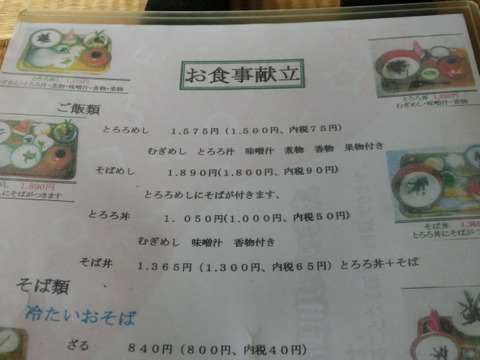 お食事献立
とろろめし 1,575円
むぎめし・とろろ汁・煮物・味噌汁・香物・果物
とろろ丼 1,050円
むぎめし・味噌汁・香物
ご飯類
とろろめし 1.575円(1.500円、内税75円)
むぎめし とろろ汁 味噌汁 煮物 香物 果物付き
そばめし 1.890円(1.800円、内税90円)
とろろめしにそばが付きます、
めし 1,890円
しにそばがつきます
とろろ丼 1.050円(1.000円、内税50円)
むぎめし 味噌汁 香物付き
そば丼 1,36
とろろ丼にそばがつ
そば丼 1.365円(1.300円、内税65円)とろろ丼+そば
そば類
冷たいおそば
ざる 840円(800円、内税40円)